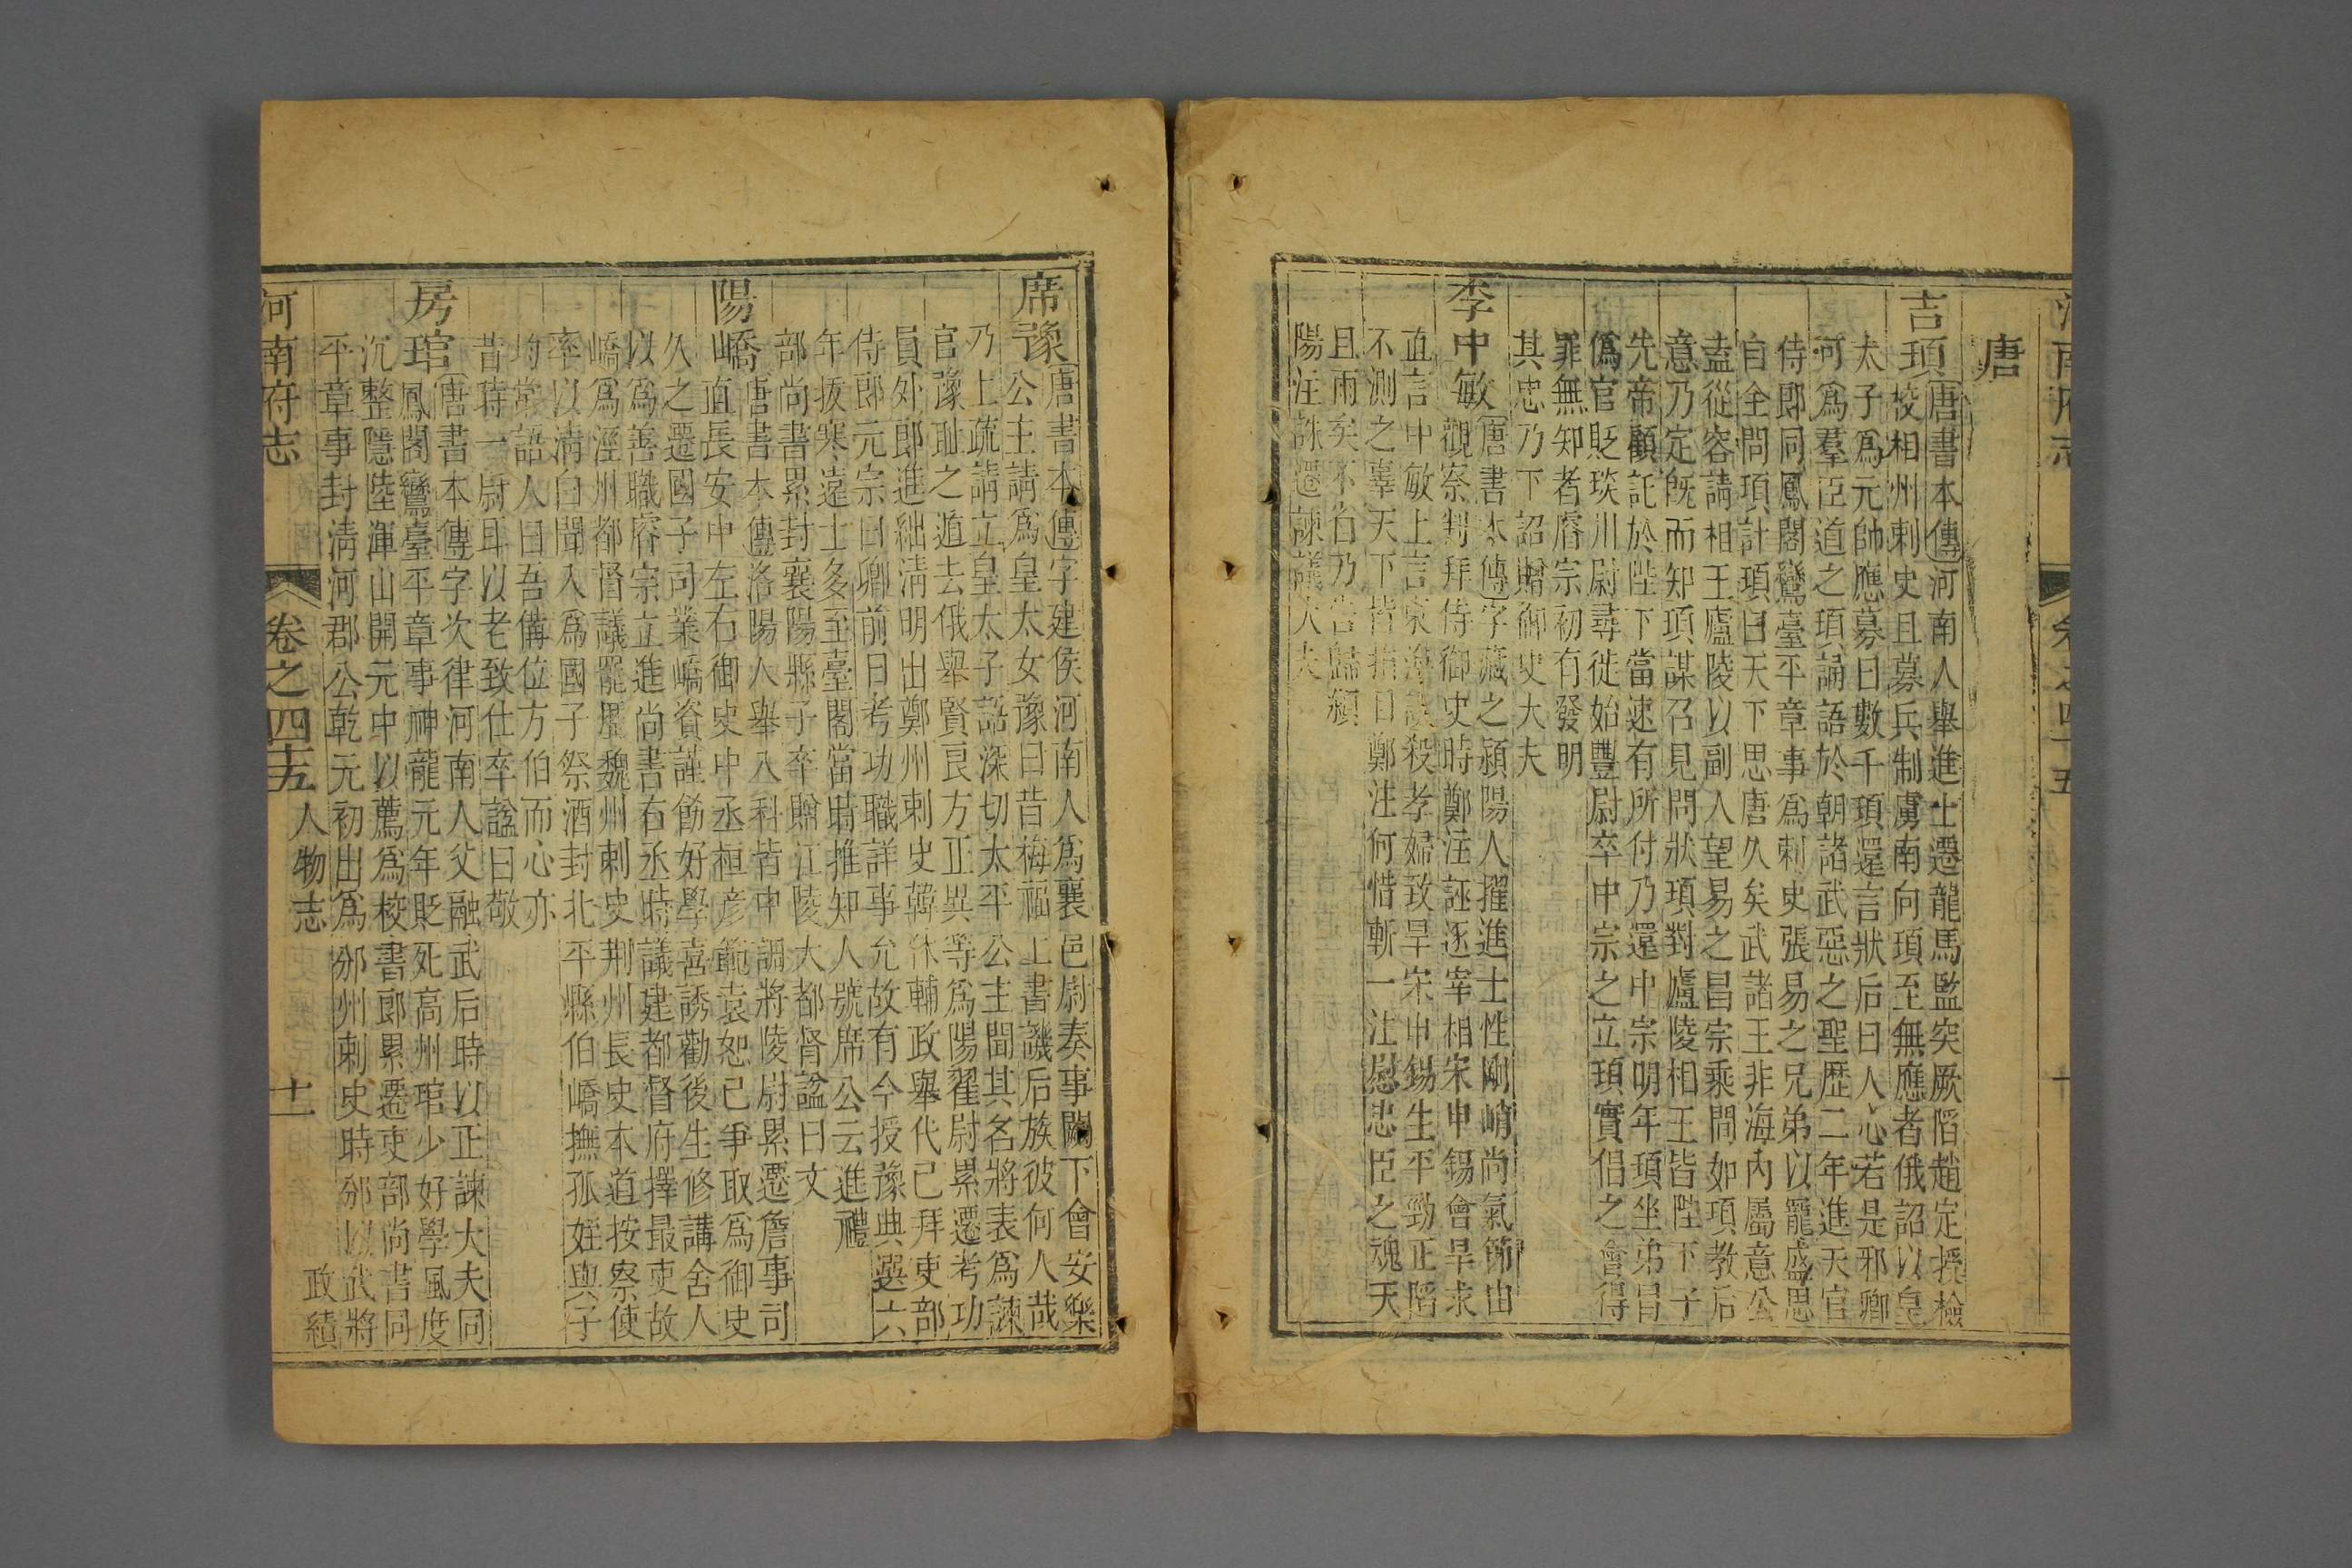 河南府志
卷之四十五
十
唐
吉頊唐書本傳河南人舉進士遷龍馬監突厥陷趙定授檢
校相州刺史且募兵制虜南向頊至無應者俄詔以皇
太子為元帥應募日數千頊還言狀后曰人心若是邪卿
可為羣臣道之頊誦語於朝諸武惡之聖歷二年進天官
侍郎同鳳閣鸞臺平章事為刺史張易之兄弟以寵盛思
自全問頊計頊曰天下思唐久矣武諸王非海內屬意公
盍從容請相王廬陵以副人望易之昌宗乘間如頊教后
意乃定旣而知頊謀召見問狀頊對廬陵相王皆陛下子
先帝顧託於陛下當速有所付乃還中宗明年頊坐弟冒
偽官貶琰川尉尋徙始豐尉卒中宗之立頊實倡之會得
罪無知者睿宗初有發明
其忠乃下詔贈御史大夫
李中敏唐書本傳字藏之潁陽人擢進士性剛峭尚氣節由
觀察判拜侍御史時鄭注誣逐宰相宋申錫會旱求
直言中敏上言殺孝婦致旱宋申錫生平勁正陷
不測之辜天下皆指目鄭注何惜斬一注慰忠臣之魂天
且雨矣不省乃告歸潁
陽注誅遷諫議大夫
席豫唐書本傳字建侯河南人為襄邑尉奏事闕下會安樂
公主請為皇太女豫曰昔梅福上書譏后族彼何人哉
乃上疏請立皇太子語深切太平公主聞其名將表為諫
官豫恥之遁去俄舉賢良方正異等為陽翟尉累遷考功
員外郎進絀清明出鄭州刺史韓休輔政舉代已拜吏部
侍郎元宗曰卿前日考功職詳事允故有今授豫典選六
年拔寒遠士多至臺閣當時推知人號席公云進禮
部尚書累封襄陽縣子卒贈江陵大都督諡曰文
陽嶠唐書本傳洛陽人舉八科皆中調將陵尉累遷詹事司
直長安中左右御史中丞桓彥範袁恕已爭取為御史
久之遷國子司業嶠資謹飭好學喜誘勸後生修講舍人
以為善職睿宗立進尚書右丞時議建都督府擇最吏故
嶠為涇州都督議罷歷魏州刺史荆州長史本道按察使
率以清白聞入為國子祭酒封北平縣伯嶠撫孤姪與子
均常語人曰吾備位方伯而心亦
昔時一尉耳以老致仕卒諡曰敬
房琯唐書本傳字次律河南人父融武后時以正諫大夫同
鳳閣鸞臺平章事神龍元年貶死高州琯少好學風度
沉整隱陸渾山開元中以薦為校書郎累遷吏部尚書同
平章事封清河郡公乾元初出為邠州刺史時邠以武將
河南府志
卷之四十五
人物志
政績
十一